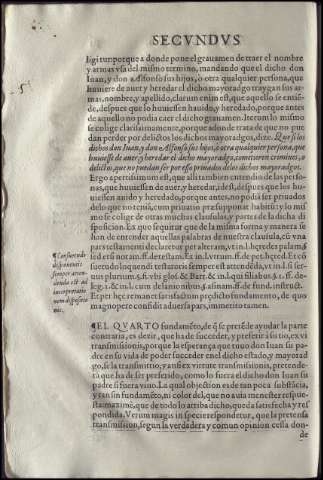 SECVNDVS
ligitur porque a donde pone el grauamen de traer el nombre
y armas vsa del mismo termino, mandando que el dicho don
Iuan, y don Alfonso sus hijos, o otra qualquier persona, que
huuiere de auer y heredar el dicho mayoradgo traygan sus ar-
mas, nombre, y apellido, clarum enim est, que aquello se entiẽ-
de, despues que lo huuiessen hauido, y heredado, porque antes
de aquello no podia caer el dicho grauamen. Iterum lo mismo
se colige clarissimamente, porque adonde trata de que no pue
dan perder por delictos los dichos mayoradgos, dize. Que si los
dichos don Iuan, y don Alfonso sus hijos, o otra qualquier persona, que
huuiesse de auer y heredar el dicho mayoradgo, cometieren crimines, o
delictos, que no puedan ser por esso priuados de los dichos mayoradgos.
Ergo apertissimum est, que alli tambien entendio de las perso-
nas, que huuiessen de auer, y heredar, idest, despues que los hu-
uiessen auido y heredado, porque antes, no podia ser priuados
delo que no tenia, cum priuatio presupponat habitũ: y lo mis
mo se colige de otras muchas clausulas, y partes de la dicha di
sposicion. Ex quo sequitur que de la misma forma y manera se
han de entender aquellas palabras de nuestra clausula, cũ vna
pars testamenti declaretur per alteram,
est consuetudo
disponentis
semper atten-
denda est ad
interpretatio-
nem dispositio
nis.
suetudo loquendi testatoris semper est attendenda,
Et per hęc remanet satisfactum prędicto fundamento, de quo
magnopere confidit aduersa pars, immerito tamen.
¶EL QVARTO fundamẽto, de q̃ se pretẽde ayudar la parte
contraria, es dezir, que ha de suceder, y preferir a su tio, ex vi
transmissionis, porque la esperança que tuuo don Iuan su pa-
dre en su vida de poder succeder en el dicho estado, y mayorad
go, se la transmittio, y ansi ex viribus transmissionis, pretende-
tiẽ que ha de ser preferido, como lo fuera el dicho don Iuan su
padre si fuera viuo. La qual objection es de tan poca substãcia,
y tan sin fundamẽto, ni color del, que no auia menester respue-
sta: maximè, que de todo lo arriba dicho, queda satisfecha y res
pondida. Verum magis in specie respondetur, que la pretensa
transmission, segun la verdadera y comun opinion cessa don-
de